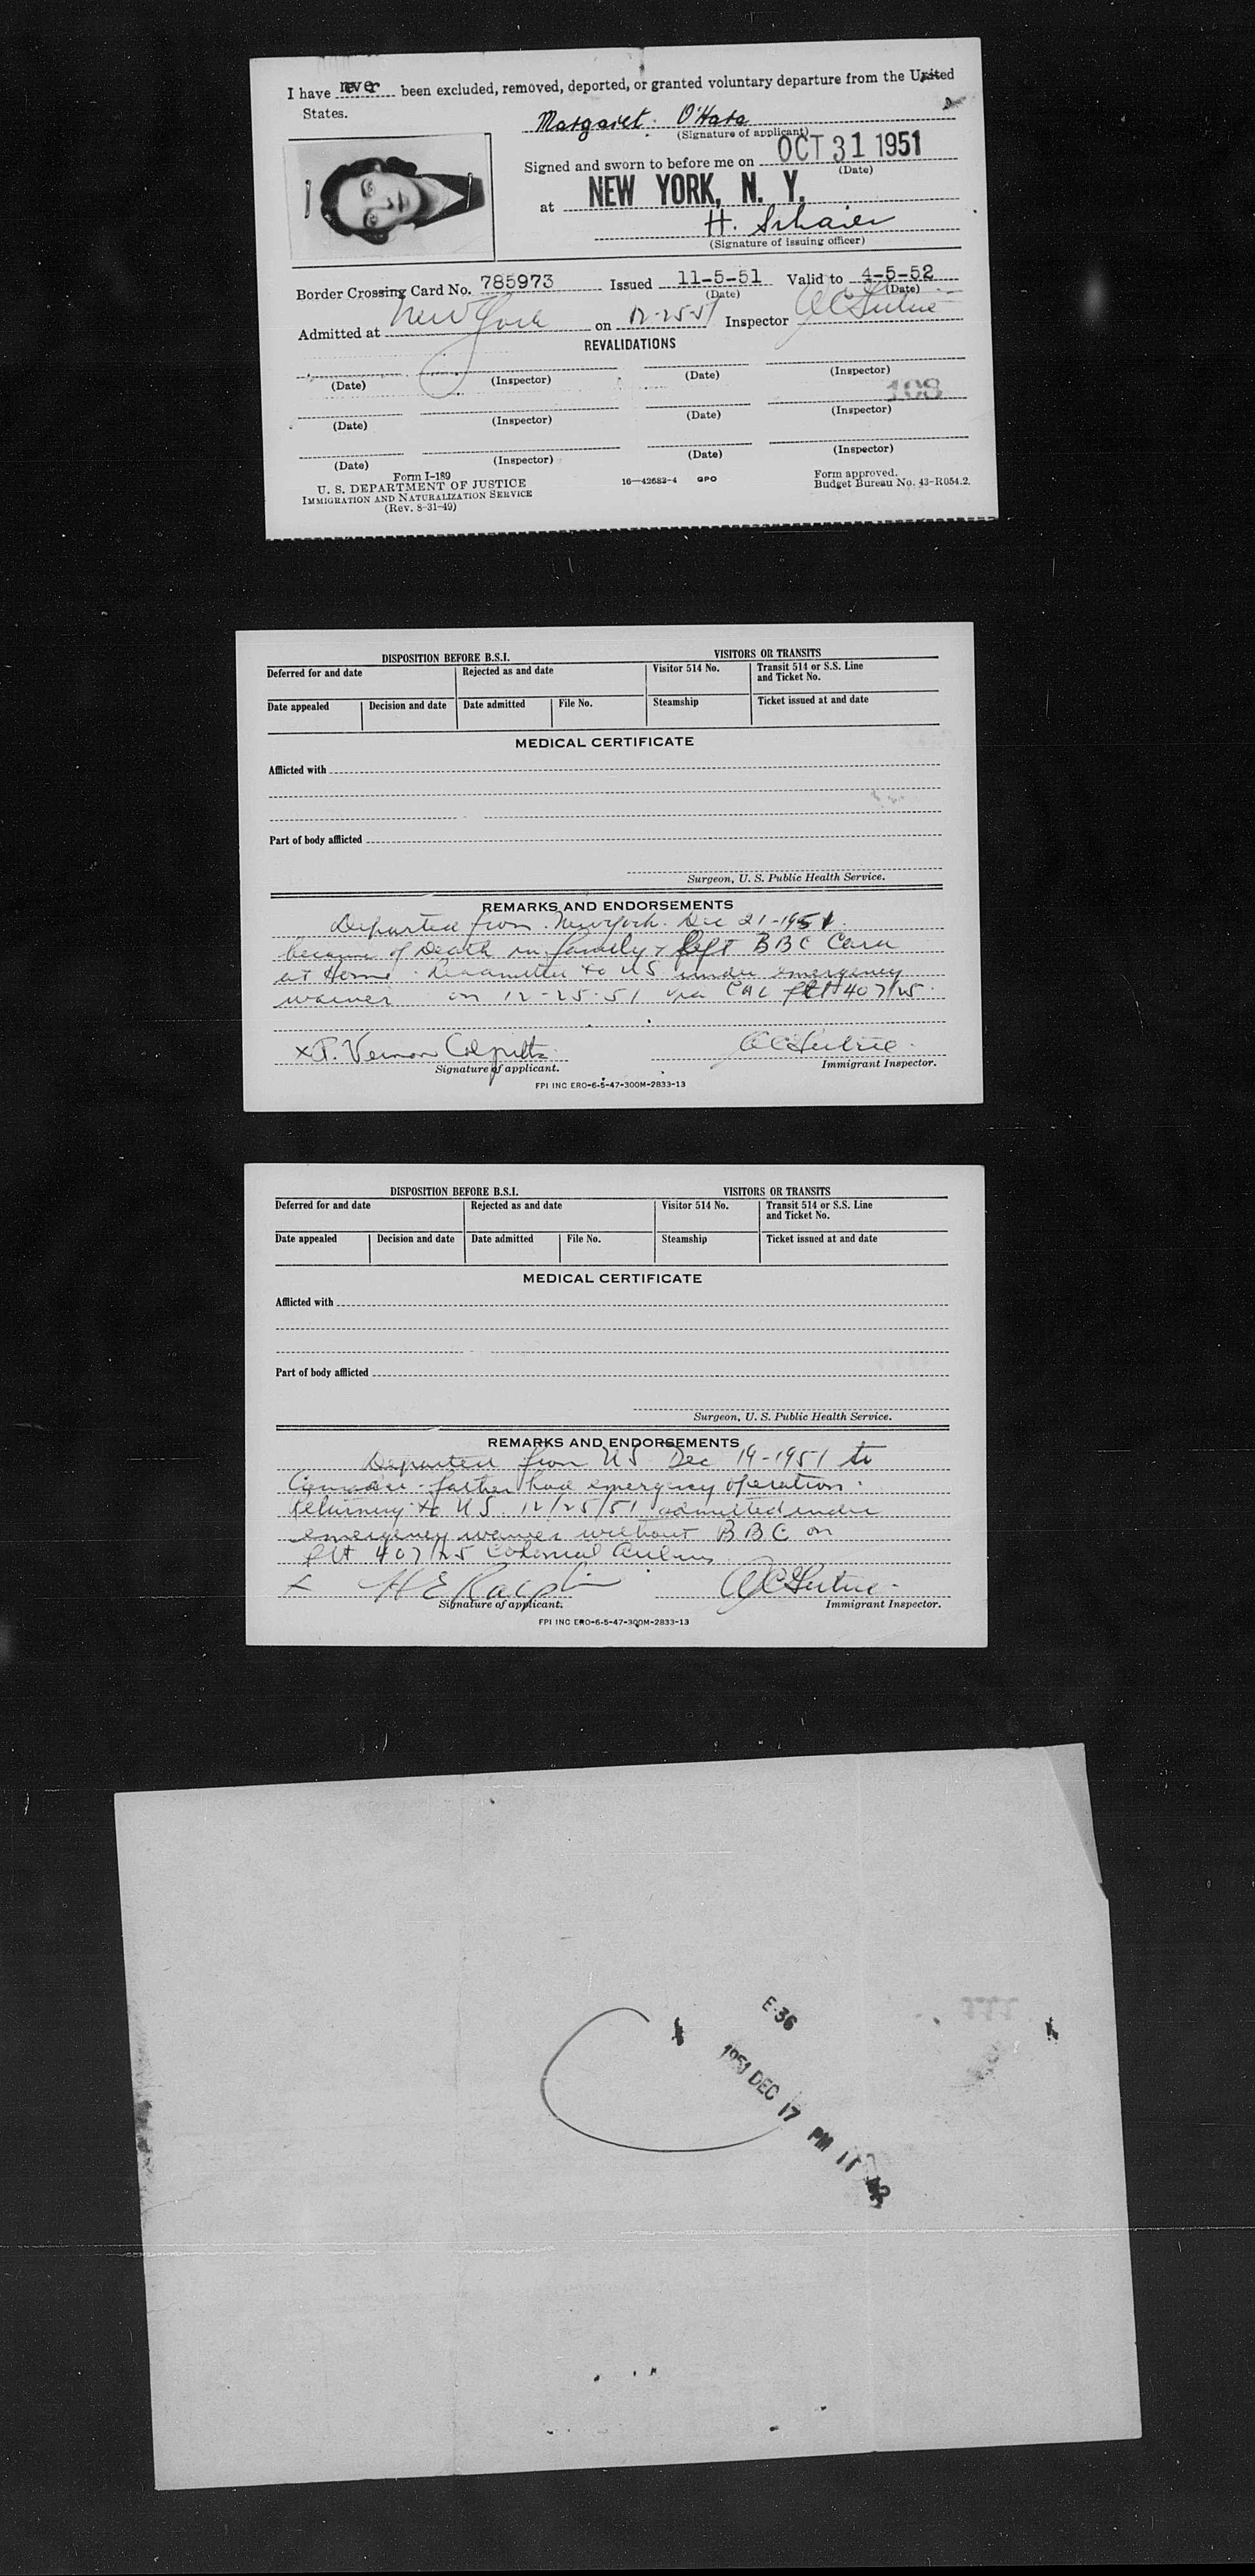 I have never been excluded, removed, deported, or granted voluntary departure from the United
States.
Margaret O'Hara
(Signature of applicant)
Signed and sworn to before me on OCT 31 1951
(Date)
at NEW YORK, N. Y.
H.
(Signature of issuing officer)
Border Crossing Card No. 785973 Issued 11-5-51 Valid to 4-5-52
(Date) (Date)
Admitted at New York on 12-25-51 Inspector
REVALIDATIONS
(Date) (Inspector) (Date) (Inspector)
108
(Date) (Inspector) (Date) (Inspector)
(Date) (Inspector) (Date) (Inspector)
Form I-189
U. S. DEPARTMENT OF JUSTICE
IMMIGRATION AND NATURALIZATION SERVICE
(Rev. 8-31-49)
16—42682-4 GPO
Form approved.
Budget Bureau No. 43-R054.2.
DISPOSITION BEFORE B.S.I. VISITORS OR TRANSITS
Deferred for and date Rejected as and date Visitor 514 No. Transit 514 or S.S. Line
and Ticket No.
Date appealed Decision and date Date admitted File No. Steamship Ticket issued at and date
MEDICAL CERTIFICATE
Afflicted with
Part of body afflicted
Surgeon, U. S. Public Health Service.
REMARKS AND ENDORSEMENTS
Departed from New York Dec 21-1951
because of Death in family & left BBC Card
at Home. Readmitted to US under emergency
waiver on 12-25-51 via CAL flt 407/25.
x P. Vernon Colpitts
Signature of applicant. Immigrant Inspector.
FPI INC ERO-6-5-47-300M-2833-13
DISPOSITION BEFORE B.S.I. VISITORS OR TRANSITS
Deferred for and date Rejected as and date Visitor 514 No. Transit 514 or S.S. Line
and Ticket No.
Date appealed Decision and date Date admitted File No. Steamship Ticket issued at and date
MEDICAL CERTIFICATE
Afflicted with
Part of body afflicted
Surgeon, U. S. Public Health Service.
REMARKS AND ENDORSEMENTS
Departed from US Dec 19-1951 to
Canada - father had emergency operation.
Returning to US 12/25/51 admitted under
emergency waiver without BBC on
flt 407/25 Colonial Airlines
x H E
Signature of applicant. Immigrant Inspector.
FPI INC ERO-6-5-47-300M-2833-13
E-36
1951 DEC 17 PM 11